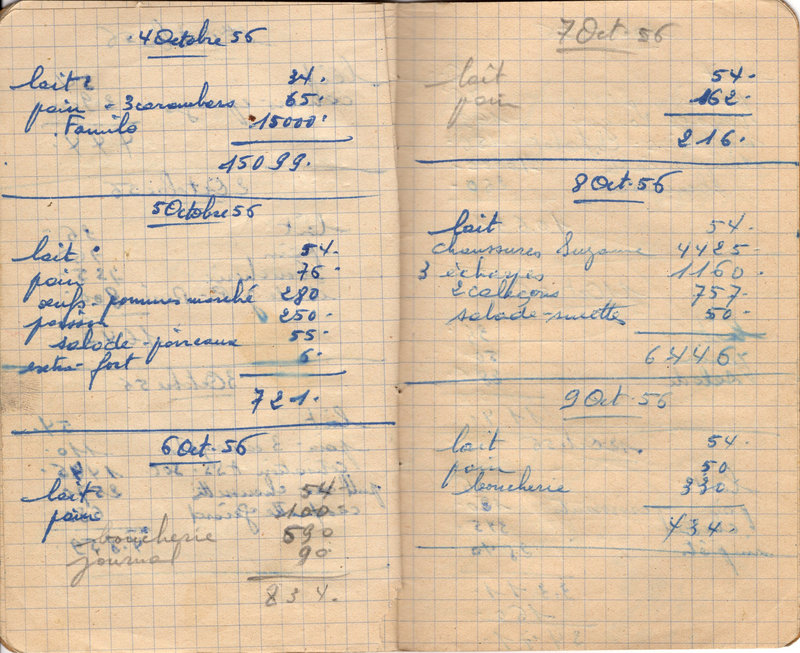 4 Octobre 56
lait 34.
pain - 3 carambars 65.
Familo 15000.
15099.
5 Octobre 56
lait 54.
pain 76.
œufs pommes marché 280
poisson 250.
salade - poireaux 55.
extra-fort 6.
721.
6 Oct. 56
lait 54
pain 100
boucherie 590
journal 90
834.
7 Oct. 56
lait 54.
pain 162.
216.
8 Oct. 56
lait 54.
chaussures Suzanne 4425.
3 1160.
2 caleçons 757.
salade - 50.
6446.
9 Oct. 56
lait 54.
pain 50
boucherie 330
434.